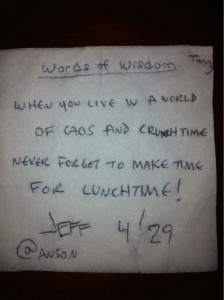 Words of Wisdom
WHEN YOU LIVE IN A WORLD
OF CAOS AND CRUNCHTIME
NEVER FORGET TO MAKE TIME
FOR LUNCHTIME!
JEFF 4/29
@ANSON